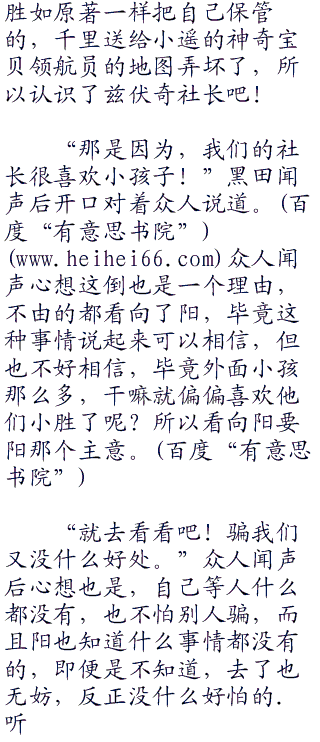 胜如原著一样把自己保管
的，千里送给小遥的神奇宝
贝领航员的地图弄坏了，所
以认识了兹伏奇社长吧！
“那是因为，我们的社
长很喜欢小孩子！”黑田闻
声后开口对着众人说道。(百
度“有意思书院”)
(www.heihei66.com)众人闻
声心想这倒也是一个理由，
不由的都看向了阳，毕竟这
种事情说起来可以相信，但
也不好相信，毕竟外面小孩
那么多，干嘛就偏偏喜欢他
们小胜了呢？所以看向阳要
阳那个主意。(百度“有意思
书院”)
“就去看看吧！骗我们
又没什么好处。”众人闻声
后心想也是，自己等人什么
都没有，也不怕别人骗，而
且阳也知道什么事情都没有
的，即便是不知道，去了也
无妨，反正没什么好怕的.
听